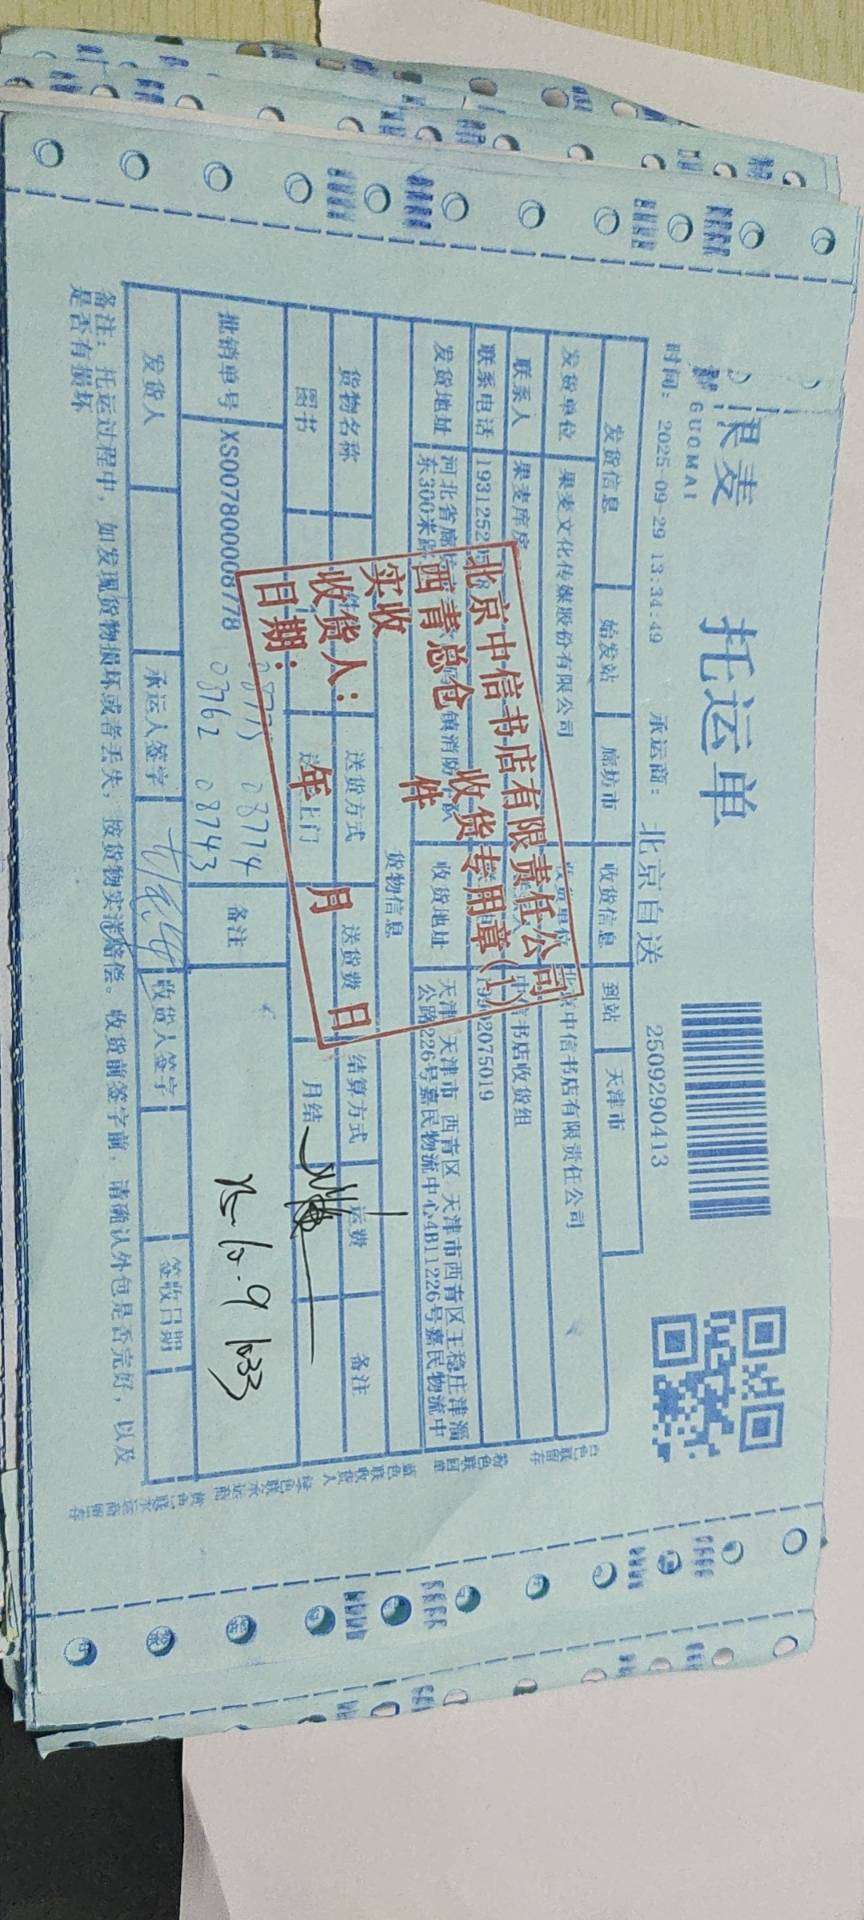 果麦
GUOMAI
托运单
2509290413
时间: 2025-09-29 13:34:49 承运商: 北京自送
发货信息 始发站 廊坊市 收货信息 到站 天津市
发货单位 果麦文化传媒股份有限公司 收货单位 北京中信书店有限责任公司
联系人 果麦库房 中信书店收货组
联系电话
发货地址 河北省廊坊 镇消防 收货地址 天津 天津市 西青区 天津市西青区王稳庄津淄
东300米路 公路226号嘉民物流中心4B11226号嘉民物流中
货物信息
货物名称 送货方式 送货费 结算方式 运费 备注
图书 上门 月结
批销单号 XS007800008778 08774 备注
03762 08743
25-10-9 1033
发货人 承运人签字 收货人签字 签收日期
备注: 托运过程中, 如发现货物损坏或者丢失, 按货物实洋赔偿。收货前签字前, 请确认外包是否完好, 以及
是否有损坏
北京中信书店有限责任公司
西青总仓 收货专用章(1)
实收 件
收货人:
日期: 年 月 日
白色联留存 粉色联回单 蓝色联收货人 绿色联承运商 黄色联承运商留存